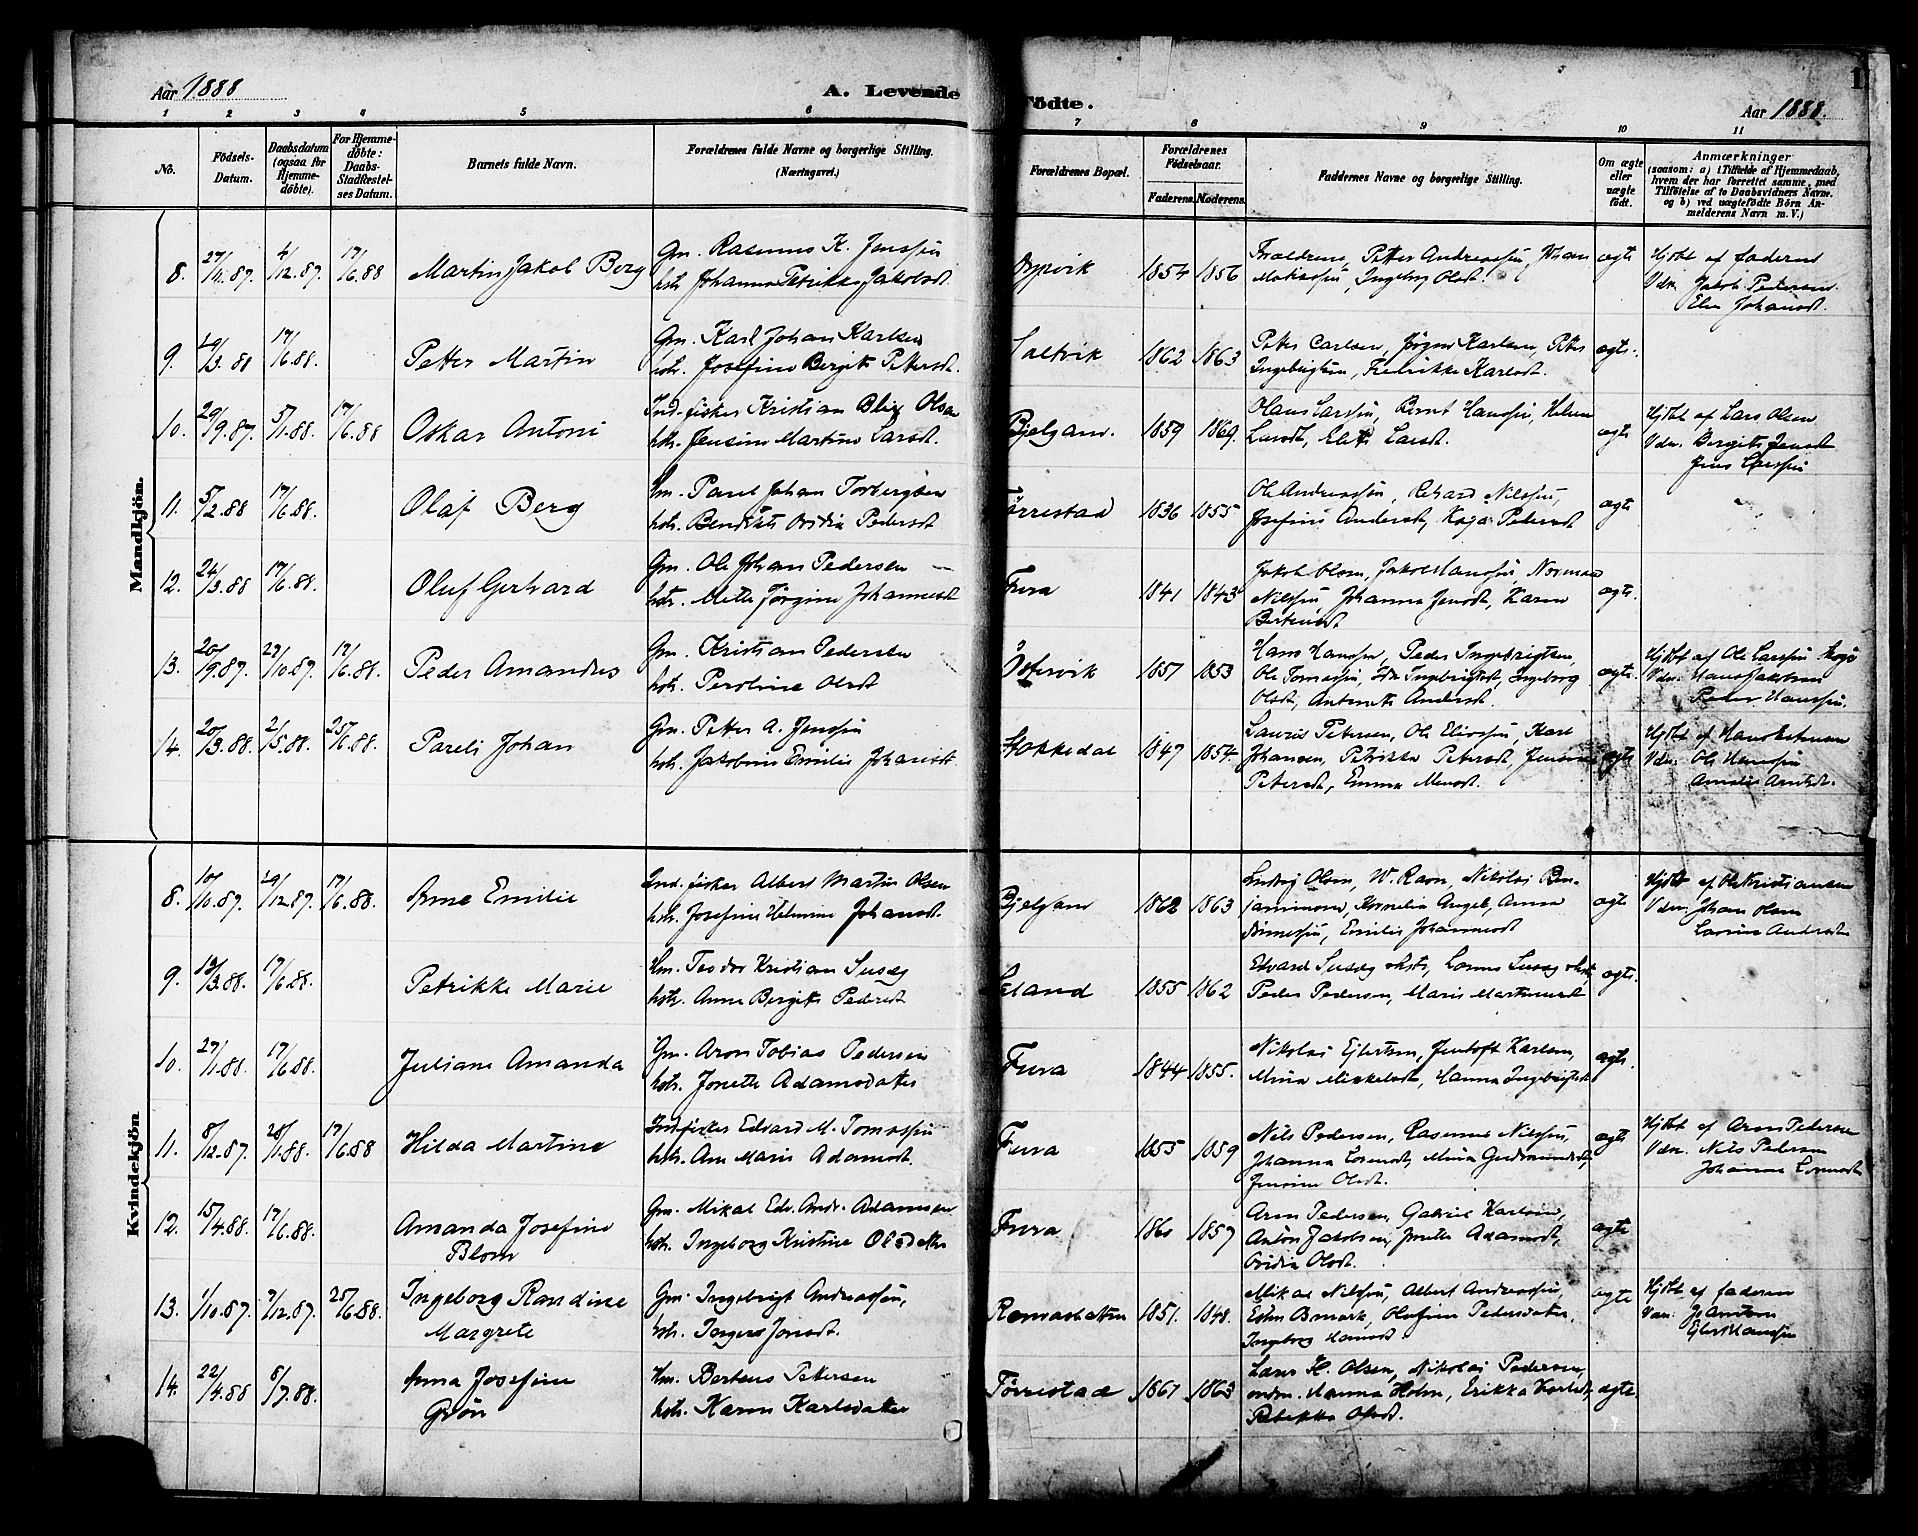 Aar 1888
A. Levende Födte.
Aar 1888.
1 2 3 4 5 6 7 8 9 10 11
No.
Födsels-Datum.
Daabsdatum (ogsaa for Hjemme-döbte).
For Hjemme-döbte: Daabs-Stadfæstel-ses Datum.
Barnets fulde Navn.
Forældrenes fulde Navne og borgerlige Stilling.
(Næringsvei.)
Forældrenes Bopæl.
Forældrenes Födselsaar.
Faderens. Moderens.
Faddernes Navne og borgerlige Stilling.
Om ægte eller uægte födt.
Anmærkninger
(saasom: a) i Tilfælde af Hjemmedaab,
hvem der har forrettet samme, med
Tilföielse af to Daabsvidners Navne,
og b) ved uægtefödte Börn An-
melderens Navn m. V.)
Mandkjön.
8. 27/11.87. 4/12.87. 17/6.88 Martin Jakob Berg
Gm. Rasmus K. Jenssøn
hstr. Johanna Petrikke Jakobsdt.
1854 1856
Forældrene, Petter Andreassøn,
Ingeborg Olsdt.
ægte
Hjdbt af faderen
Vdn. Jakob Pedersen
Elen Johansdt.
9. 17/6.88. Petter Martin
Gm. Karl Johan Karlsen
hstr. Josefine Bergitte Pettersdt.
Saltvik 1862 1863
Peter Carlsen, Jörgen Karlsen, Peter
Ingebrigtsen, Fredrikke Karlsdt.
ægte.
10. 29/9.87. 5/1.88. 17/6.88 Oskar Antoni
Ind. fisker Kristian Blix Olsen
hstr. Jensine Martine Larsdt.
Bjelgam. 1859
Olaus Larssøn, Bernt Hanssøn,
Larsdt, Larsdt.
ægte
Hjdbt af Lars Olsen
Vdn. Bergitte Jensdt
Jens Larssøn
11. 5/2.88 17/6.88. Olaf Berg
Hm. Parel Johan Torbergsen
hstr. Pedersdt
Tørrestad 1836 1855
Ole Andreassøn, Rikard Nilssøn,
Josefine Andersdt, Kaja Pedersdt
ægte
12. 24/3.88 17/6.88. Oluf Gerhard
Gm. Ole Johan Pedersen
hstr. Mette Jörgine Johannesdt
Fura 1841 1843
Jakob Olsen, Jakob Hanssøn, Norman
Nilssøn, Johanna Jensdt, Karen
ægte.
13. 20/9.87. 27/10.87. 17/6.88. Peder Amandus
Gm. Kristian Pedersen
hstr. Peroline Olsdt
Östervik 1857 1853
Hans Hanssen, Peder Ingebrigtsen,
Ole Tomassøn, Ingebrigtsdt, Ingeborg
Olsdt, Antonette Andersdt.
ægte.
Hjdbt af Ole Larssøn
Vdn. Hans Jakobsen
Peder Hanssøn.
14. 20/3.88. 2/5.88. 25/6.88. Pareli Johan
Gm. Petter A. Jenssøn
hstr. Jakobine Emilie Johansdt
Stokkedal 1847 1854.
Laurits Petersen, Ole Eliassøn, Karl
Johansen, Petrikke Petersdt,
Petersdt, Emma
ægte
Hjdbt af Hans
Vdn. Ole Hanssøn
Amalie Arntsdt.
Kvindekjön
8. 10/10.87. 29/12.87. 17/6.88. Anne Emilie
Ind. fisker Albert Martin Olsen
hstr. Josefine Helmine Johansdt.
Bjelgam 1862 1863
Ludvig Olsen, W. Ravn, Nikolai Ben-
jaminsen, Kornelia Angel, Anna
Emilie Johannesdt
ægte
Hjdbt af Ole Kristiansen
Vdn. Johan Olsen
9. 13/3.88. 17/6.88. Petrikke Marie
Hm. Teodor Kristian Susæg
hstr. Anne Bergitte Pedersdt
1855 1862
Edvard Susæg
Peder Pedersen, Marie
ægte.
10. 27/1.88. 17/6.88. Juliane Amanda
Gm. Aron Tobias Pedersen
hstr. Jonette Adamsdatter
Fura 1844 1855.
Nikolai Ejlertsen, Jentoft Karlsen,
Mina Mikkelsdt, Hanna Ingebrigtsdt
ægte.
11. 8/12.87. 28/1.88. 17/6.88 Hilda Martine
Ind fisker Edvard M. Tomassøn
hstr. Ane Marie Adamsdt.
Fura 1855 1859
Nils Pedersen, Rasmus Nilssøn,
Johanna Mina Gudmundsdt,
Jensine Olsdt.
ægte
Hjdbt af Aron Pedersen
Vdn. Nils Pedersen
Johanna
12. 15/4.88. 17/6.88. Amanda Josefine
Blom
Gm. Mikal Edv. Andr. Adamsen
hstr. Ingeborg Kristine Olsdatter
Fura 1860 1857
Aron Pedersen, Gabriel Karlsen,
Anton Jakobsen, Jonette Adamsdt,
Ovidia Olsdt.
ægte
13. 1/10.87. 7/12.87. 25/6.88. Ingeborg Randine
Margrete
Gm. Ingebrigt Andreassøn,
hstr. Jonsdt.
1851. 1848.
Mikal Nilssøn, Albert Andreassøn,
Olufine Pedersdatter,
Ingeborg Hansdt.
ægte
Hjdbt af faderen
Vdn.
Ejlert Hanssøn
14. 22/4.88 8/7.88. Anna Josefine
Grön
Hm. Berteus Petersen
hstr. Karen Karlsdatter
Tørrestad 1861 1863
Lars H. Olsen, Nikolai Pedersen,
Hanna Holm, Erikka Karlsdt,
Rebekka Olsdt.
ægte